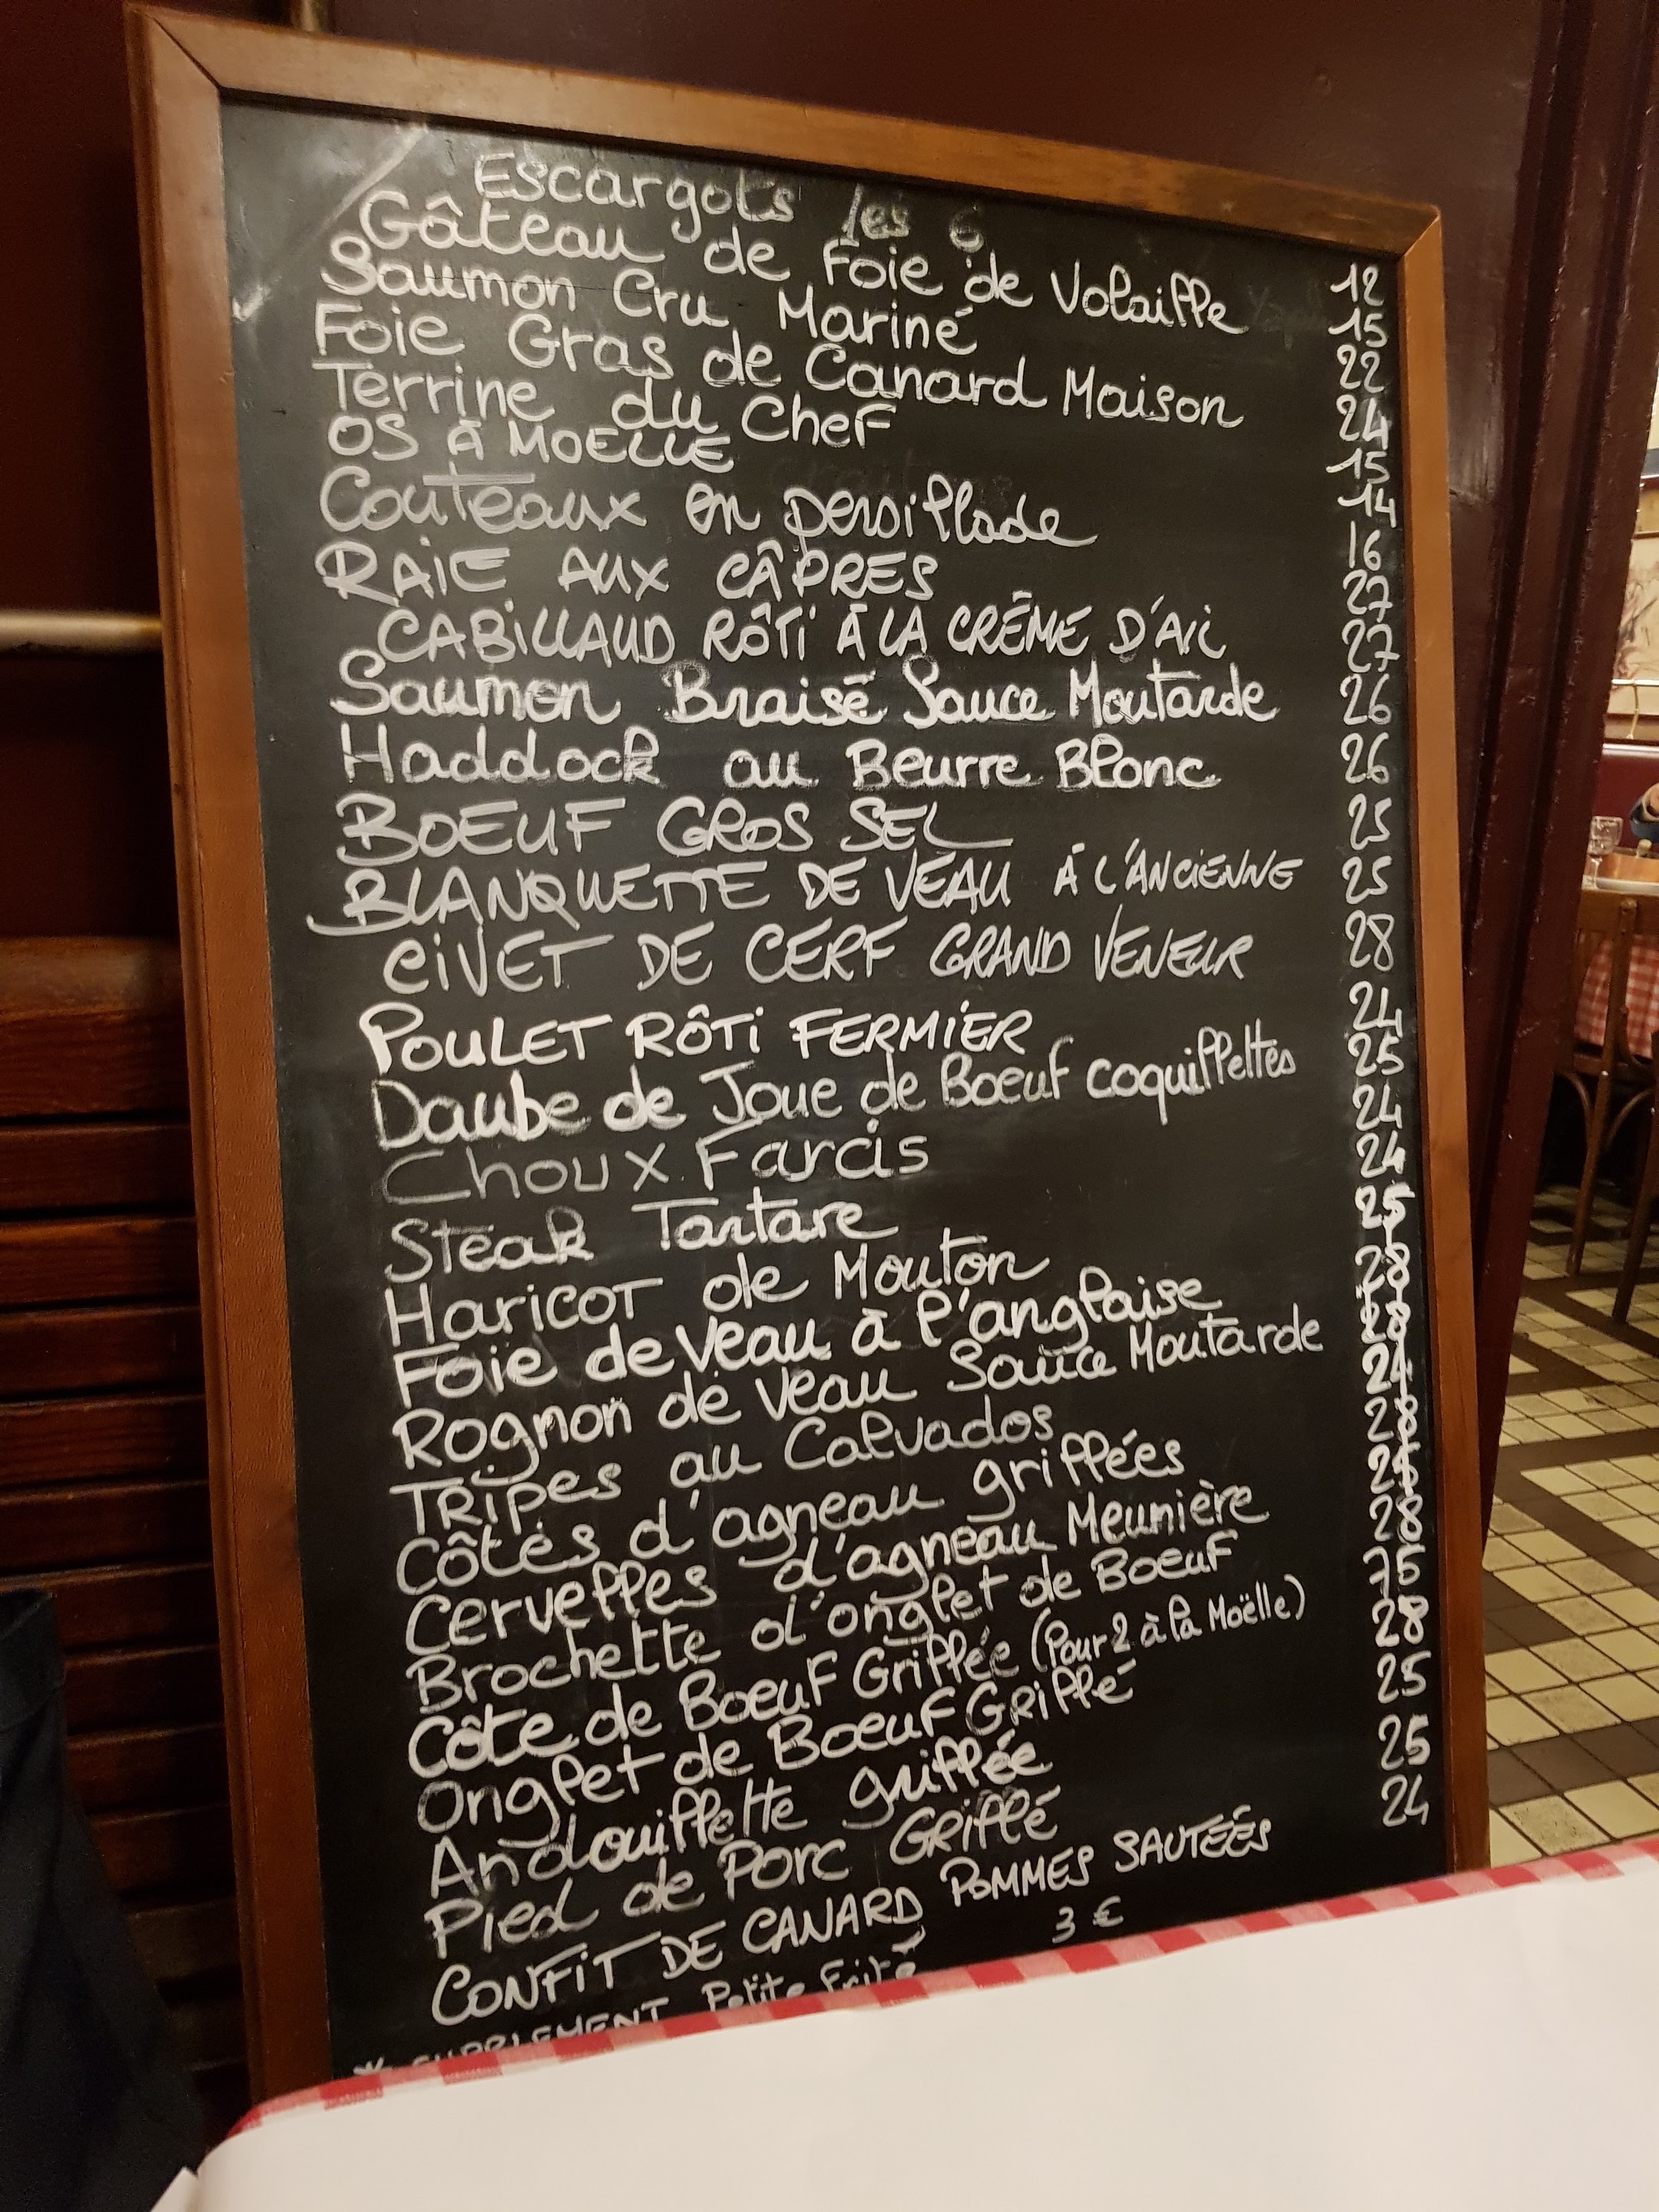 Escargots les 6 12
Gâteau de Foie de Volaille 15
Saumon Cru Mariné 22
Foie Gras de Canard Maison 24
Terrine du Chef 15
OS À MOELLE 14
Couteaux en persillade 16
RAIE AUX CÂPRES 27
CABILLAUD RÔTI À LA CRÊME D'AIL 27
Saumon Braisé Sauce Moutarde 26
Haddock au Beurre Blanc 26
BOEUF GROS SEL 25
BLANQUETTE DE VEAU À L'ANCIENNE 25
CIVET DE CERF GRAND VENEUR 28
POULET RÔTI FERMIER 24
Daube de Joue de Boeuf coquillettes 25
Choux Farcis 24
Steak Tartare 24
Haricot de Mouton 25
Foie de veau à l'anglaise 28
Rognon de veau Sauce Moutarde 28
Tripes au Calvados 24
Côtes d'agneau grillées 28
Cervelles d'agneau Meunière 25
Brochette d'onglet de Boeuf 28
Côte de Boeuf Grillée (Pour 2 à la Moëlle) 75
Onglet de Boeuf Grillé 28
Andouillette grillée 25
Pied de Porc Grillé 25
CONFIT DE CANARD POMMES SAUTÉÉS 24
* SUPPLEMENT Petite Frite 3 €